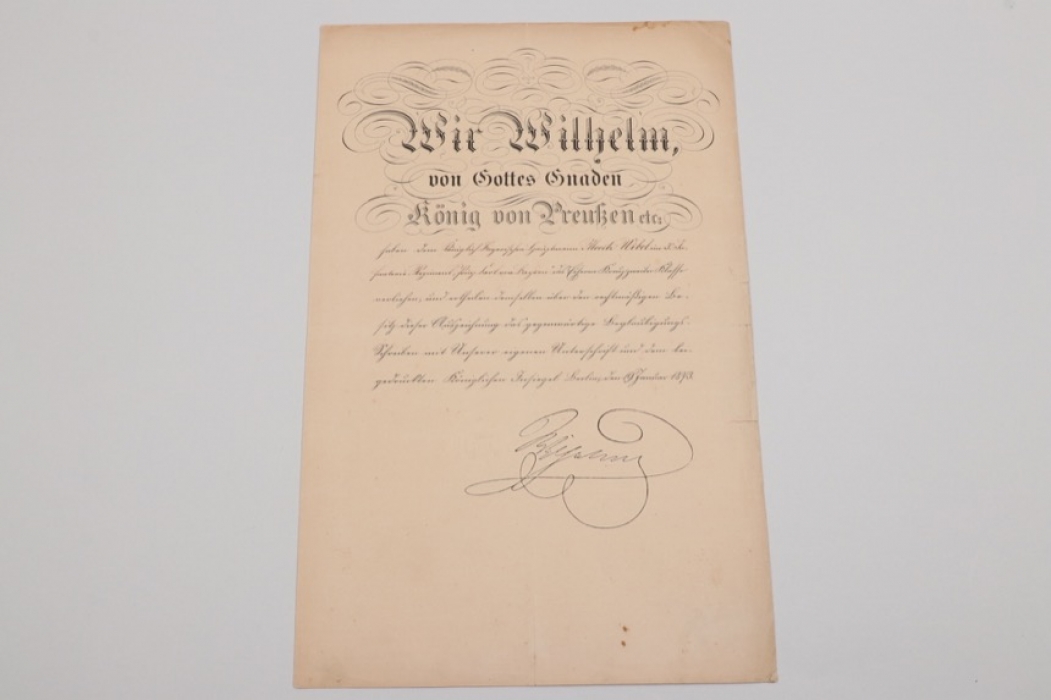 Wir Wilhelm,
von Gottes Gnaden
König von Preußen etc:
haben dem Königlich Bayerischen Hauptmann
Regiment, das Eiserne Kreuz zweiter Klasse
verliehen, und ertheilen demselben über den rechtmäßigen Be-
sitz dieser Auszeichnung das gegenwärtige Beglaubigungs-
Schreiben mit Unserer eigenen Unterschrift und dem bei-
gedruckten Königlichen Insiegel. Berlin, den Januar 1873.
Wilhelm